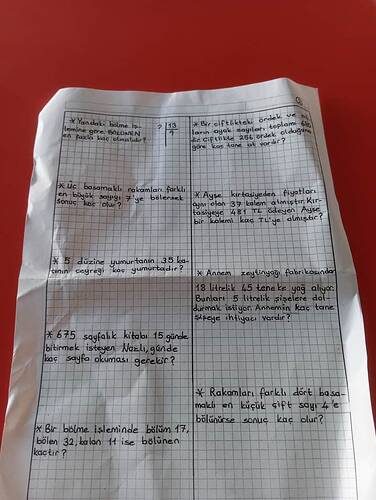 * Yandaki bölme iş-
lemine göre BÖLÜNEN
en fazla kaç olmalıdır?
? | 13
9
* Üç basamaklı rakamları farklı
en büyük sayıyı 7'ye bölersek
sonuç kaç olur?
* 5 düzine yumurtanın 35 ka-
tının çeyreği kaç yumurtadır?
* 675 sayfalık kitabı 15 günde
bitirmek isteyen Nazlı, günde
kaç sayfa okuması gerekir?
* Bir bölme işleminde bölüm 17,
bölen 32, kalan 11 ise bölünen
kaçtır?
* Bir çiftlikteki ördek ve
ların ayak sayıları toplamı
Bu çiftlikte 256 ördek olduğuna
göre kaç tane at vardır?
* Ayşe kırtasiyeden fiyatları
aynı olan 37 kalem almıştır. Kır-
tasiyeye 481 TL ödeyen Ayşe
bir kalemi kaç TL'ye almıştır?
* Annem zeytinyağı fabrikasından
18 litrelik 45 teneke yağ alıyor.
Bunları 5 litrelik şişelere dol-
durmak istiyor. Annemin kaç tane
şişeye ihtiyacı vardır?
* Rakamları farklı dört basa-
maklı en küçük çift sayı 4'e
bölünürse sonuç kaç olur?